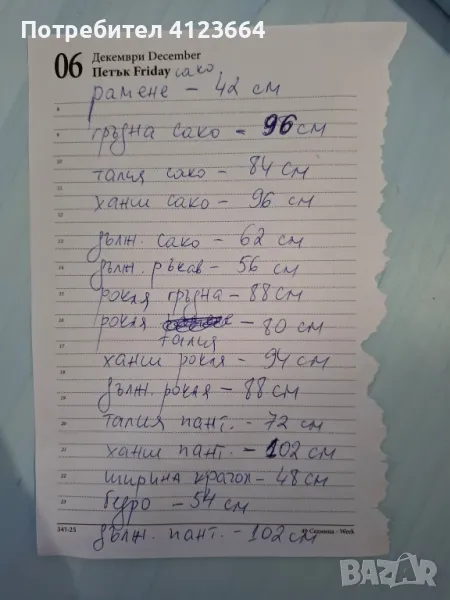 Потребител 4123664
06 Декември December
Петък Friday сако
рамене – 42 см
8
9 гръдна сако – 96 см
10
талия сако – 84 см
11
ханш сако – 96 см
12
13 дълж. сако – 62 см
14 дълж. ръкав – 56 см
15 рокля гръдна – 88 см
16 рокля – 80 см
талия
17
ханш рокля – 94 см
18
19 дълж. рокля – 88 см
20 талия пант. – 72 см
21 ханш пант. – 102 см
22 ширина крачол – 48 см
23 бедро – 54 см
341-25 49 Седмица - Week
дълж. пант. – 102 см
BAZAR.bg